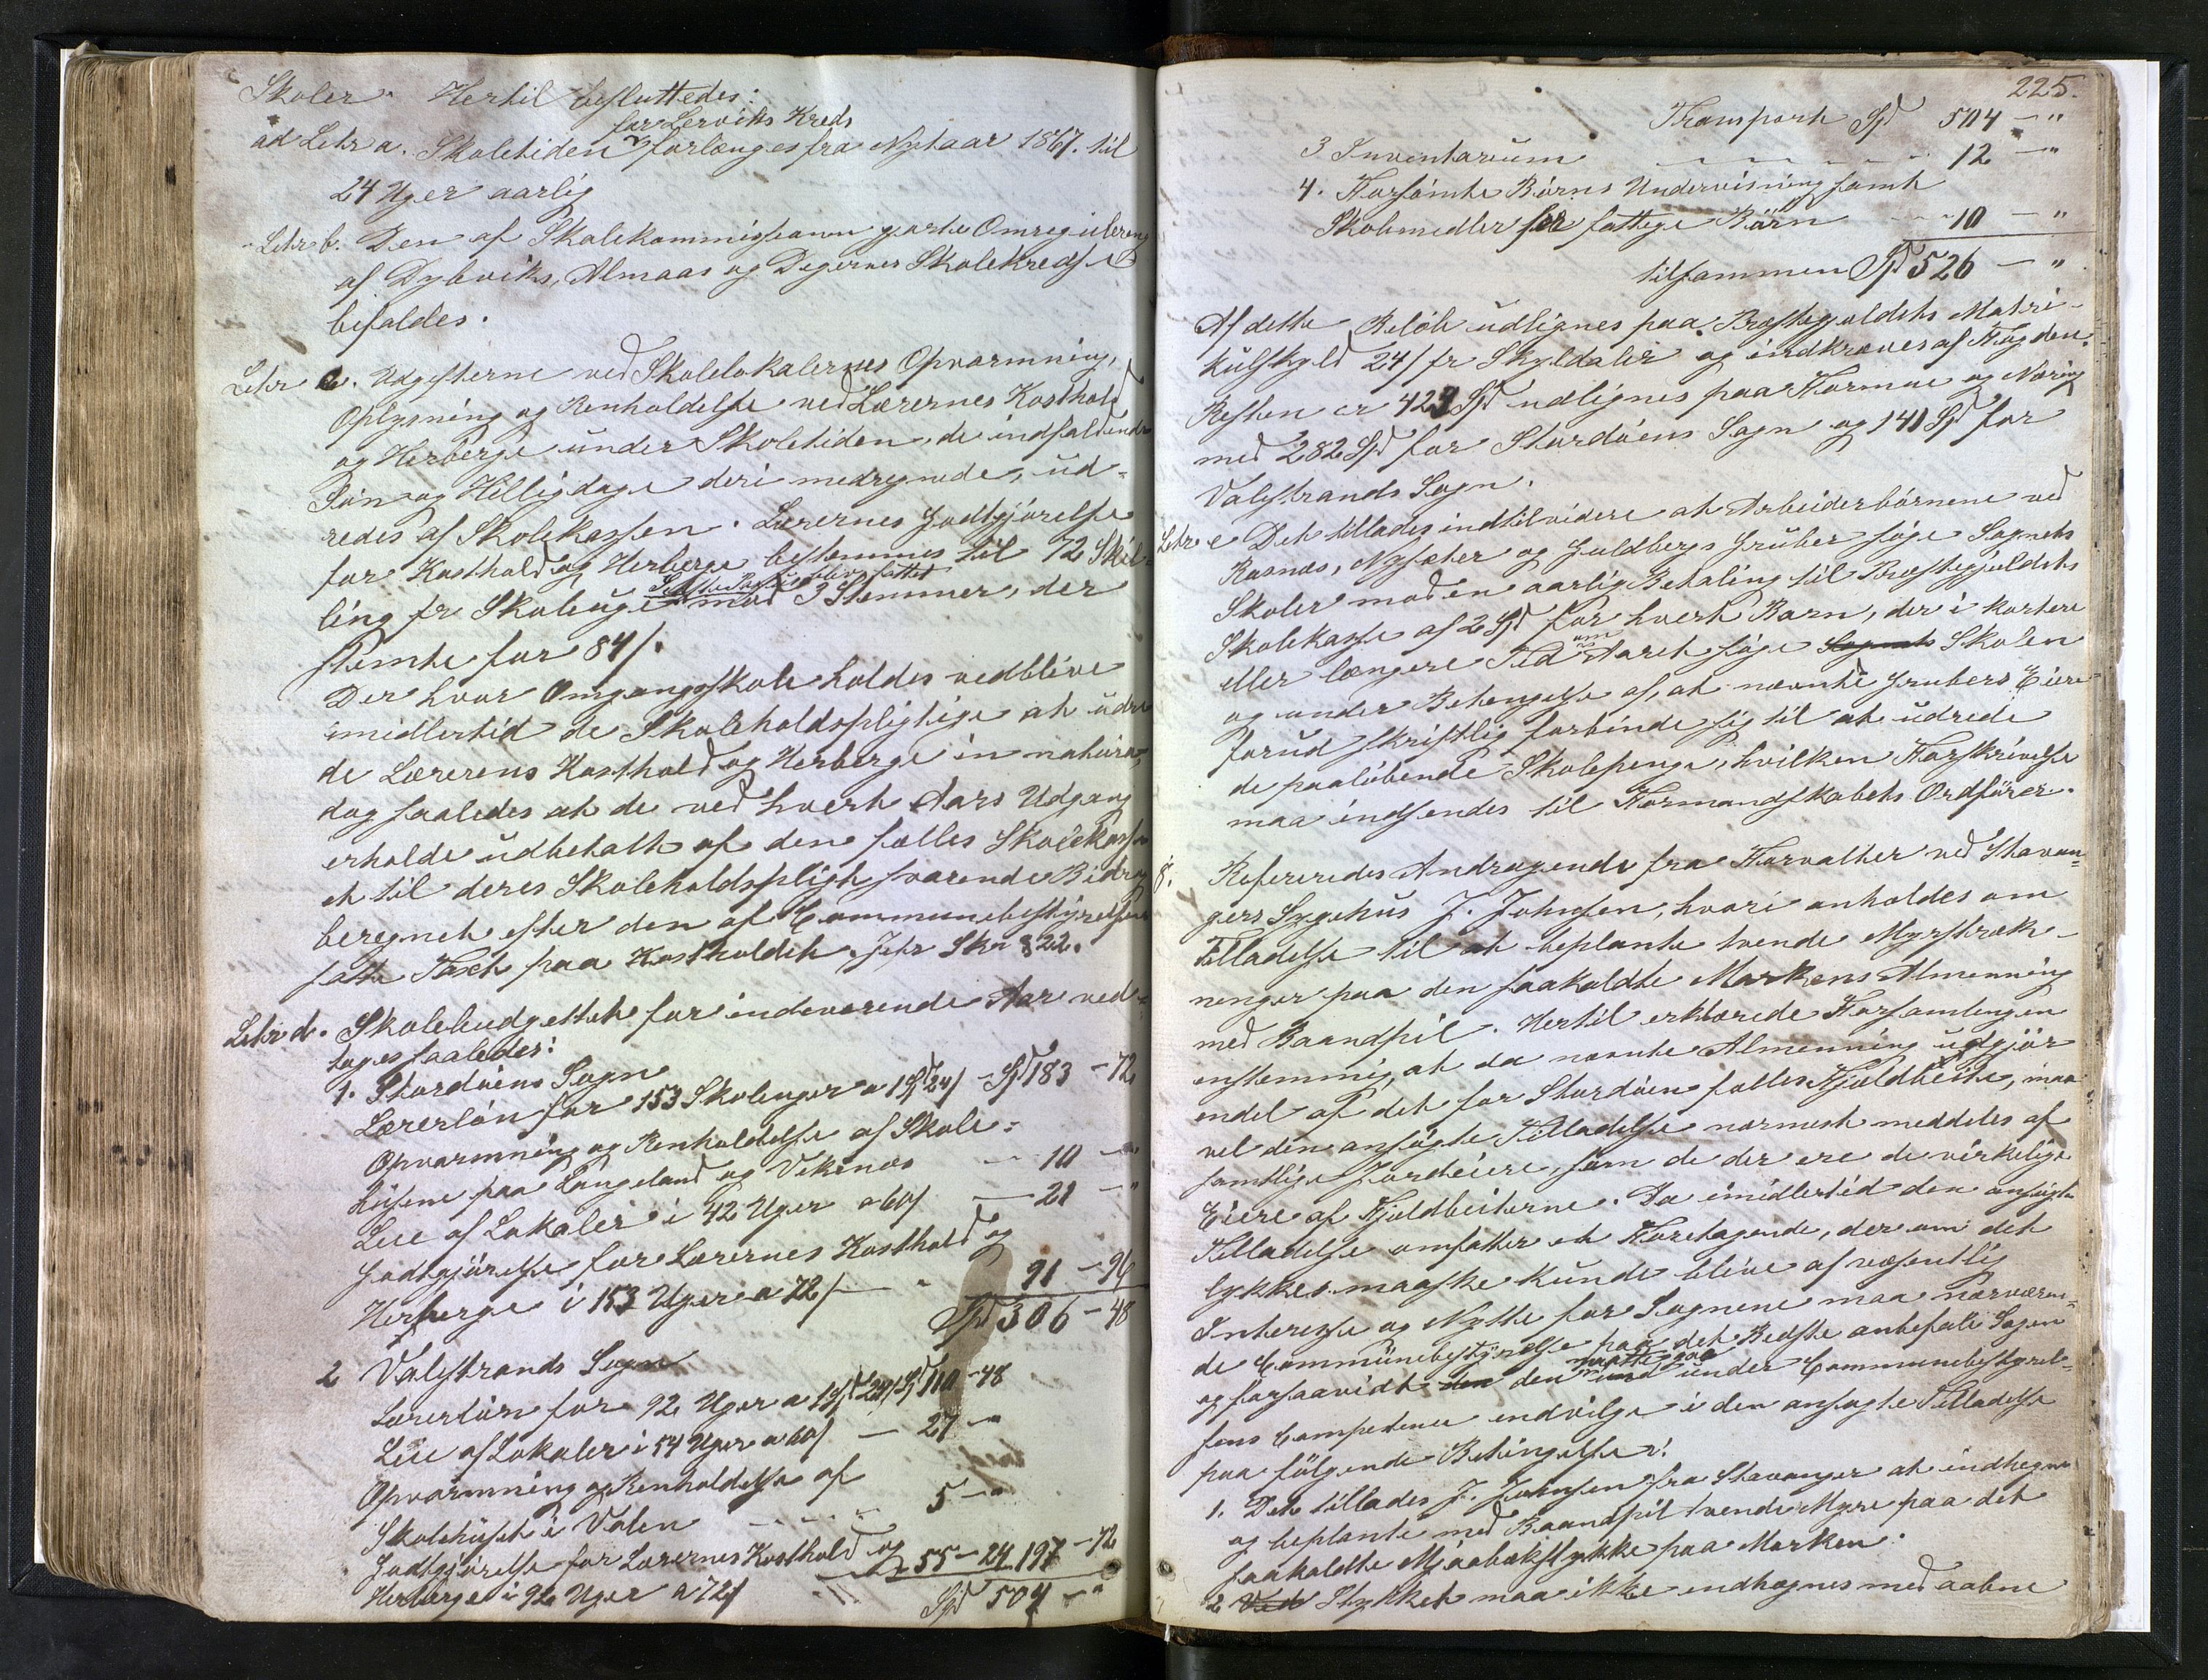 Skoler. Hertil besluttedes:
for Lerviks Kreds
ad Letr a. Skoletiden forlænges fra Nytaar 1867. til
24 Uger aarlig
Letr b. Den af Skolekommissionen gjorte Omregulering
af Dybviks, Almaas og Degernes Skolekredse
bifaldes.
Letr c. Udgifterne ved Skolelokalernes Opvarmning,
Oplysning og Renholdelse ved Lærernes Kosthold
og Herberge under Skoletiden, de indfaldende
Søn og Helligdage deri medregnede, ud-
redes af Skolekassen. Lærernes Godtgjørelse
for Kosthold og Herberge bestemmes til 72 Skil-
ling pr Skoleuge med 3 Stemmer, der
stemte for 84/.
Der hvor Omgangsskole holdes vedblive
imidlertid de Skoleholdspligtige at udre
de Lærerens Kosthold og Herberge in natura,
dog saaledes at de ved hvert Aars Udgang
erholde udbetalt af den fælles Skolekasse
et til deres Skoleholdspligt svarende Bidrag
beregnet efter den af Communebestyrelsen
satte Taxt paa Kostholdet. Jefr Skn § 22.
Letr d. Skolebudgettet for indeværende Aar ved-
toges saaledes:
1. Stordøens Sogn
Lærerløn for 153 Skoleuger a 1 Spd 24/ - Spd 183 - 72
Opvarmning og Renholdelse af Skole-
husene paa Langeland og Vikenæs - 10 - "
Leie af Lokaler i 42 Uger a 60/ - 21 - "
Godtgjørelse for Lærernes Kosthold og
Herberge i 153 Uger a 72/ - " 91 - 96
Spd 306 - 48
2 Valestrands Sogn
Lærerløn for 92 Uger a 1 Spd 24/ Spd 110 - 48
Leie af Lokaler i 54 Uger a 60/ - 27 - "
Opvarmning og Renholdelse af
Skolehuset i Valen - 5 - "
Godtgjørelse for Lærernes Kosthold og
Herberge i 92 Uger a 72/ 55 - 24 197 - 72
Spd 504 - "
225.
Transport Spd 504 - "
3 Inventarium - 12 - "
4. Forsømte Børns Undervisning samt
Skolemidler for fattige Børn - 10 - "
tilsammen Spd 526 - "
Af dette Beløb udlignes paa Præstegjeldets Matri-
kulskyld 24/ pr Skylddaler og indkræves af Fogden.
Resten er 423 Spd udlignes paa Formue og Næring
med 282 Spd for Stordøens Sogn og 141 Spd for
Valestrands Sogn.
Letr e Det tillades indtilvidere at Arbeiderbørnene ved
Rosnæs, Nysæter og Guldbergs Gruber søge Sognets
Skoler mod en aarlig Betaling til Præstegjeldets
Skolekasse af 2 Spd for hvert Barn, der i kortere
eller længere Tid om Aaret søge Sognets Skolen
og under Betingelse af, at nævnte Grubers Eiere
forud skriftlig forbinde sig til at udrede
de paaløbende Skolepenge, hvilken Forskrivelse
maa indsendes til Formandskabets Ordfører.
8. Refereredes Andragende fra Forvalter ved Stavan-
gers Sygehus J. Johnsen, hvori anholdes om
Tilladelse til at beplante tvende Myrstræk-
ninger paa den saakaldte Markens Almenning
med Baandpil. Hertil erklærede Forsamlingen
enstemmig, at da nævnte Almenning udgjør
endel af det for Stordøen fælles Fjeldbeite, maa
vel den ansøgte Tilladelse nærmest meddeles af
samtlige Jordeiere, som de der ere de virkelige
Eiere af Fjeldbeiterne. Da imidlertid den ansøgte
Tilladelse omfatter et Foretagende, der om det
lykkes maaske kunde blive af væsentlig
Interesse og Nytte for Sognene maa nærværen-
de Communebestyrelse paa det Bedste anbefale Sagen
og forsaavidt den den maatte staa under Communebestyrel-
sens Competence indvilge i den ansøgte Tilladelse
paa følgende Betingelser:
1. Det tillades J. Johnsen fra Stavanger at indhegne
og beplante med Baandpil tvende Myre paa det
saakaldte Mjaabækstykke paa Marken.
2 Ved Stykket maa ikke indhegnes med aabne